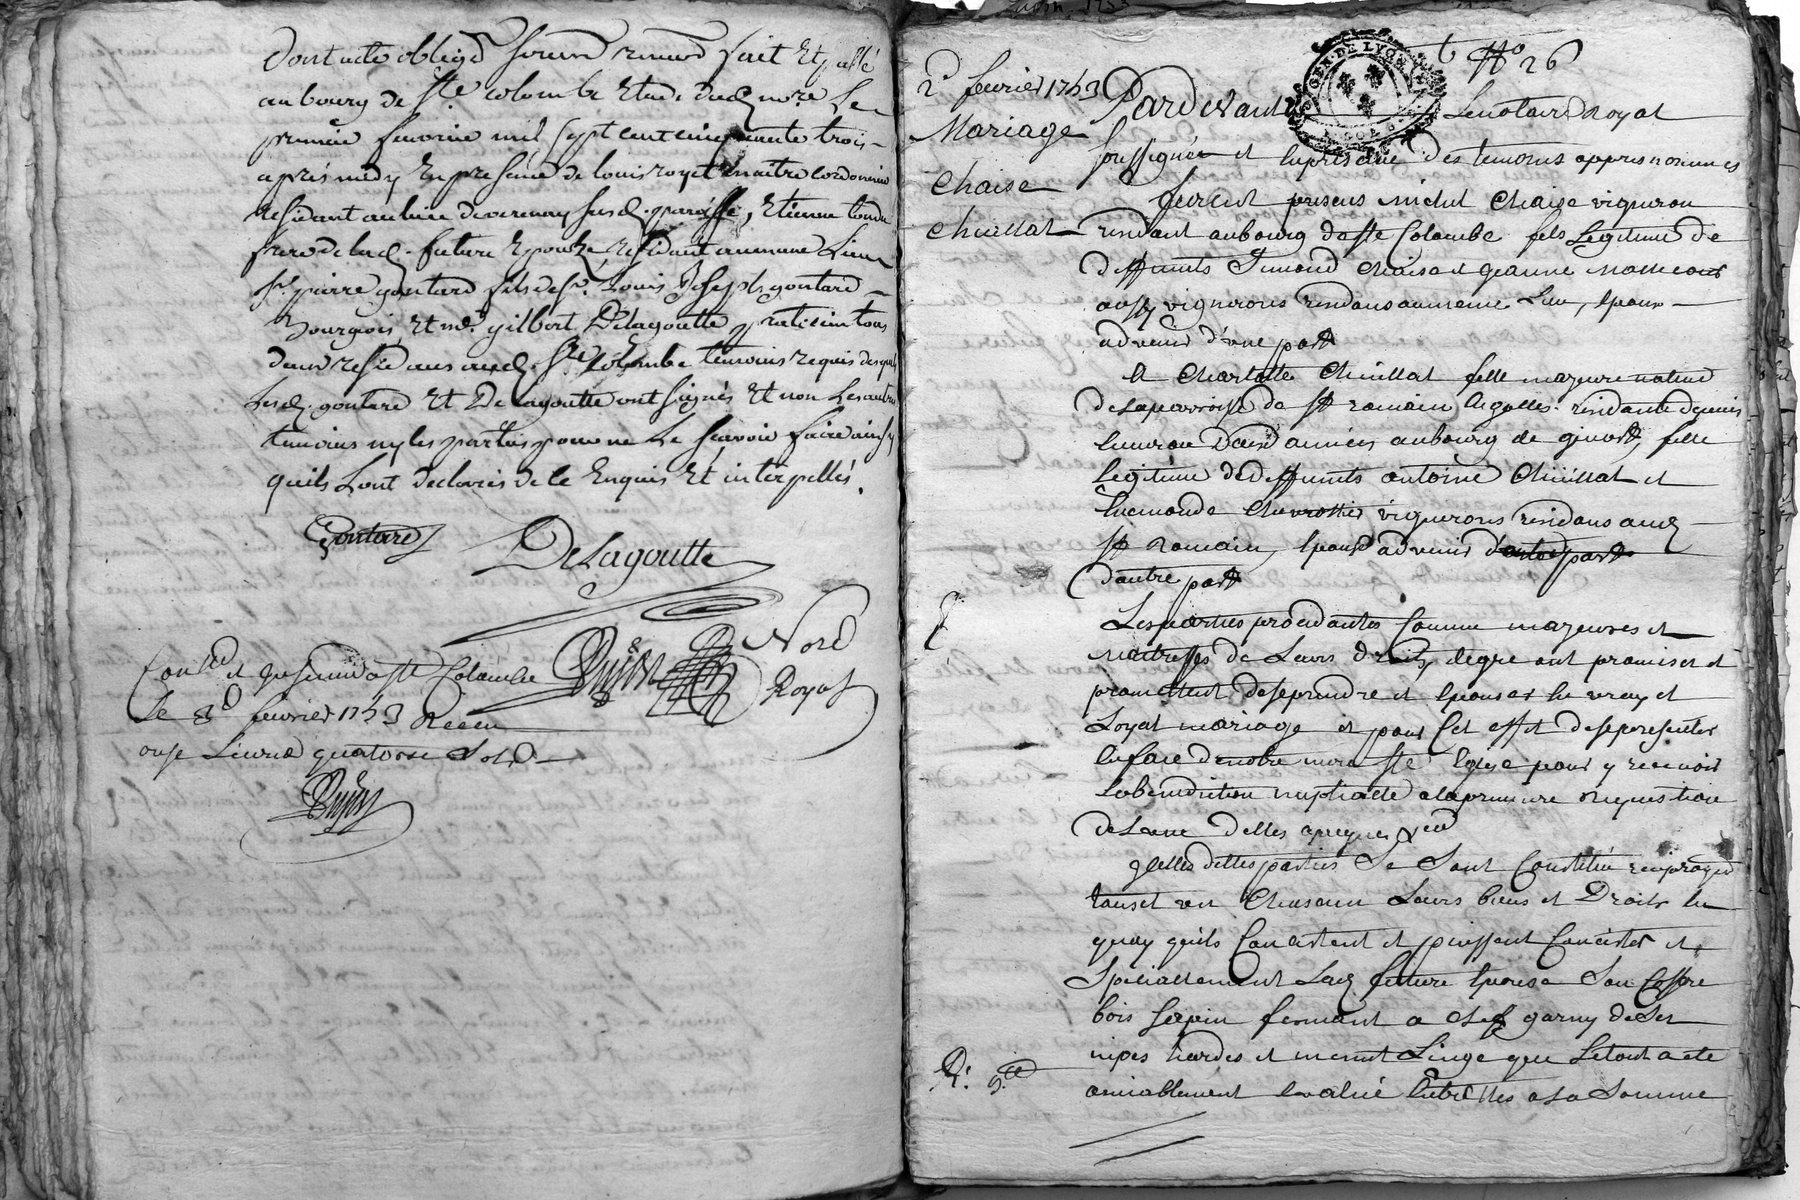 Dont acte obligé soumis renoncé fait Et passé
au bourg de Ste colombe Etude dud. nore Le
premier fevrier mil sept cent cinquante trois
apres midy En presence de louis royet maitre cordonnier
residant au lieu de verenay susd. paroisse, Etienne
frere de lad. future Epouze, residant au meme Lieu
Sr. pierre goutard fils de Sr. Louis Joseph goutard
Bourgois, Et me. gilbert Delagoutte praticien tous
deux residans aud. Ste Colombe temoins requis desquels
Lesd. goutard Et Delagoutte ont signés Et non Les autres
temoins ny les parties pour ne Le scavoir faire ainsy
quils Lont declarés de ce Enquis Et interpellés.
Goutard
DeLagoutte
Nord
Royal
Contlé et a Ste Colombe
Le 3d fevrier 1753 Receu
onze Livres quatorse Sols
t No 26
GEN. DE LYON
2d fevrier 1753
Mariage
Chaise
Chuillat
Pardevant Le notaire Royal
soussigné et En presence des temoins appres nommes
furent presens michel Chaise vigneron
residant au bourg de Ste Colombe fils Legitime de
deffunts Simond Chaise et jeanne
aussy vignerons residans au meme Lieu, Epoux
advenir d'une part
Et Charlotte Chuillat fille majeure native
de La parroisse de St romain residante depuis
Environ annees au bourg de givors, fille
Legitime de deffunts antoine Chuillat et
vignerons residans aud.
St Romain, Epouse advenir d'autre part
d'autre part
Lesparties procedantes Comme majeures et
Maitresses de Leurs Droits, degre ont promises et
promettent de se prendre et Epouser En vray et
Loyal mariage et pour Cet effet de se presenter
En face de notre mere Ste Eglise pour y recevoir
La benediction nuptialle a la premiere requisition
de Lune delles
yelles dittes parties Se Sont Constitué
Chascun Leurs biens et Droits En
quoy quils Consistent et puissent Consister et
Specialement Lad. future Epouse Son Coffre
bois Sappin fermant a Clef garny de Ses
nipes hardes et menut Linge que Letout a ete
amiablement Evalué Entre Elles a La Somme